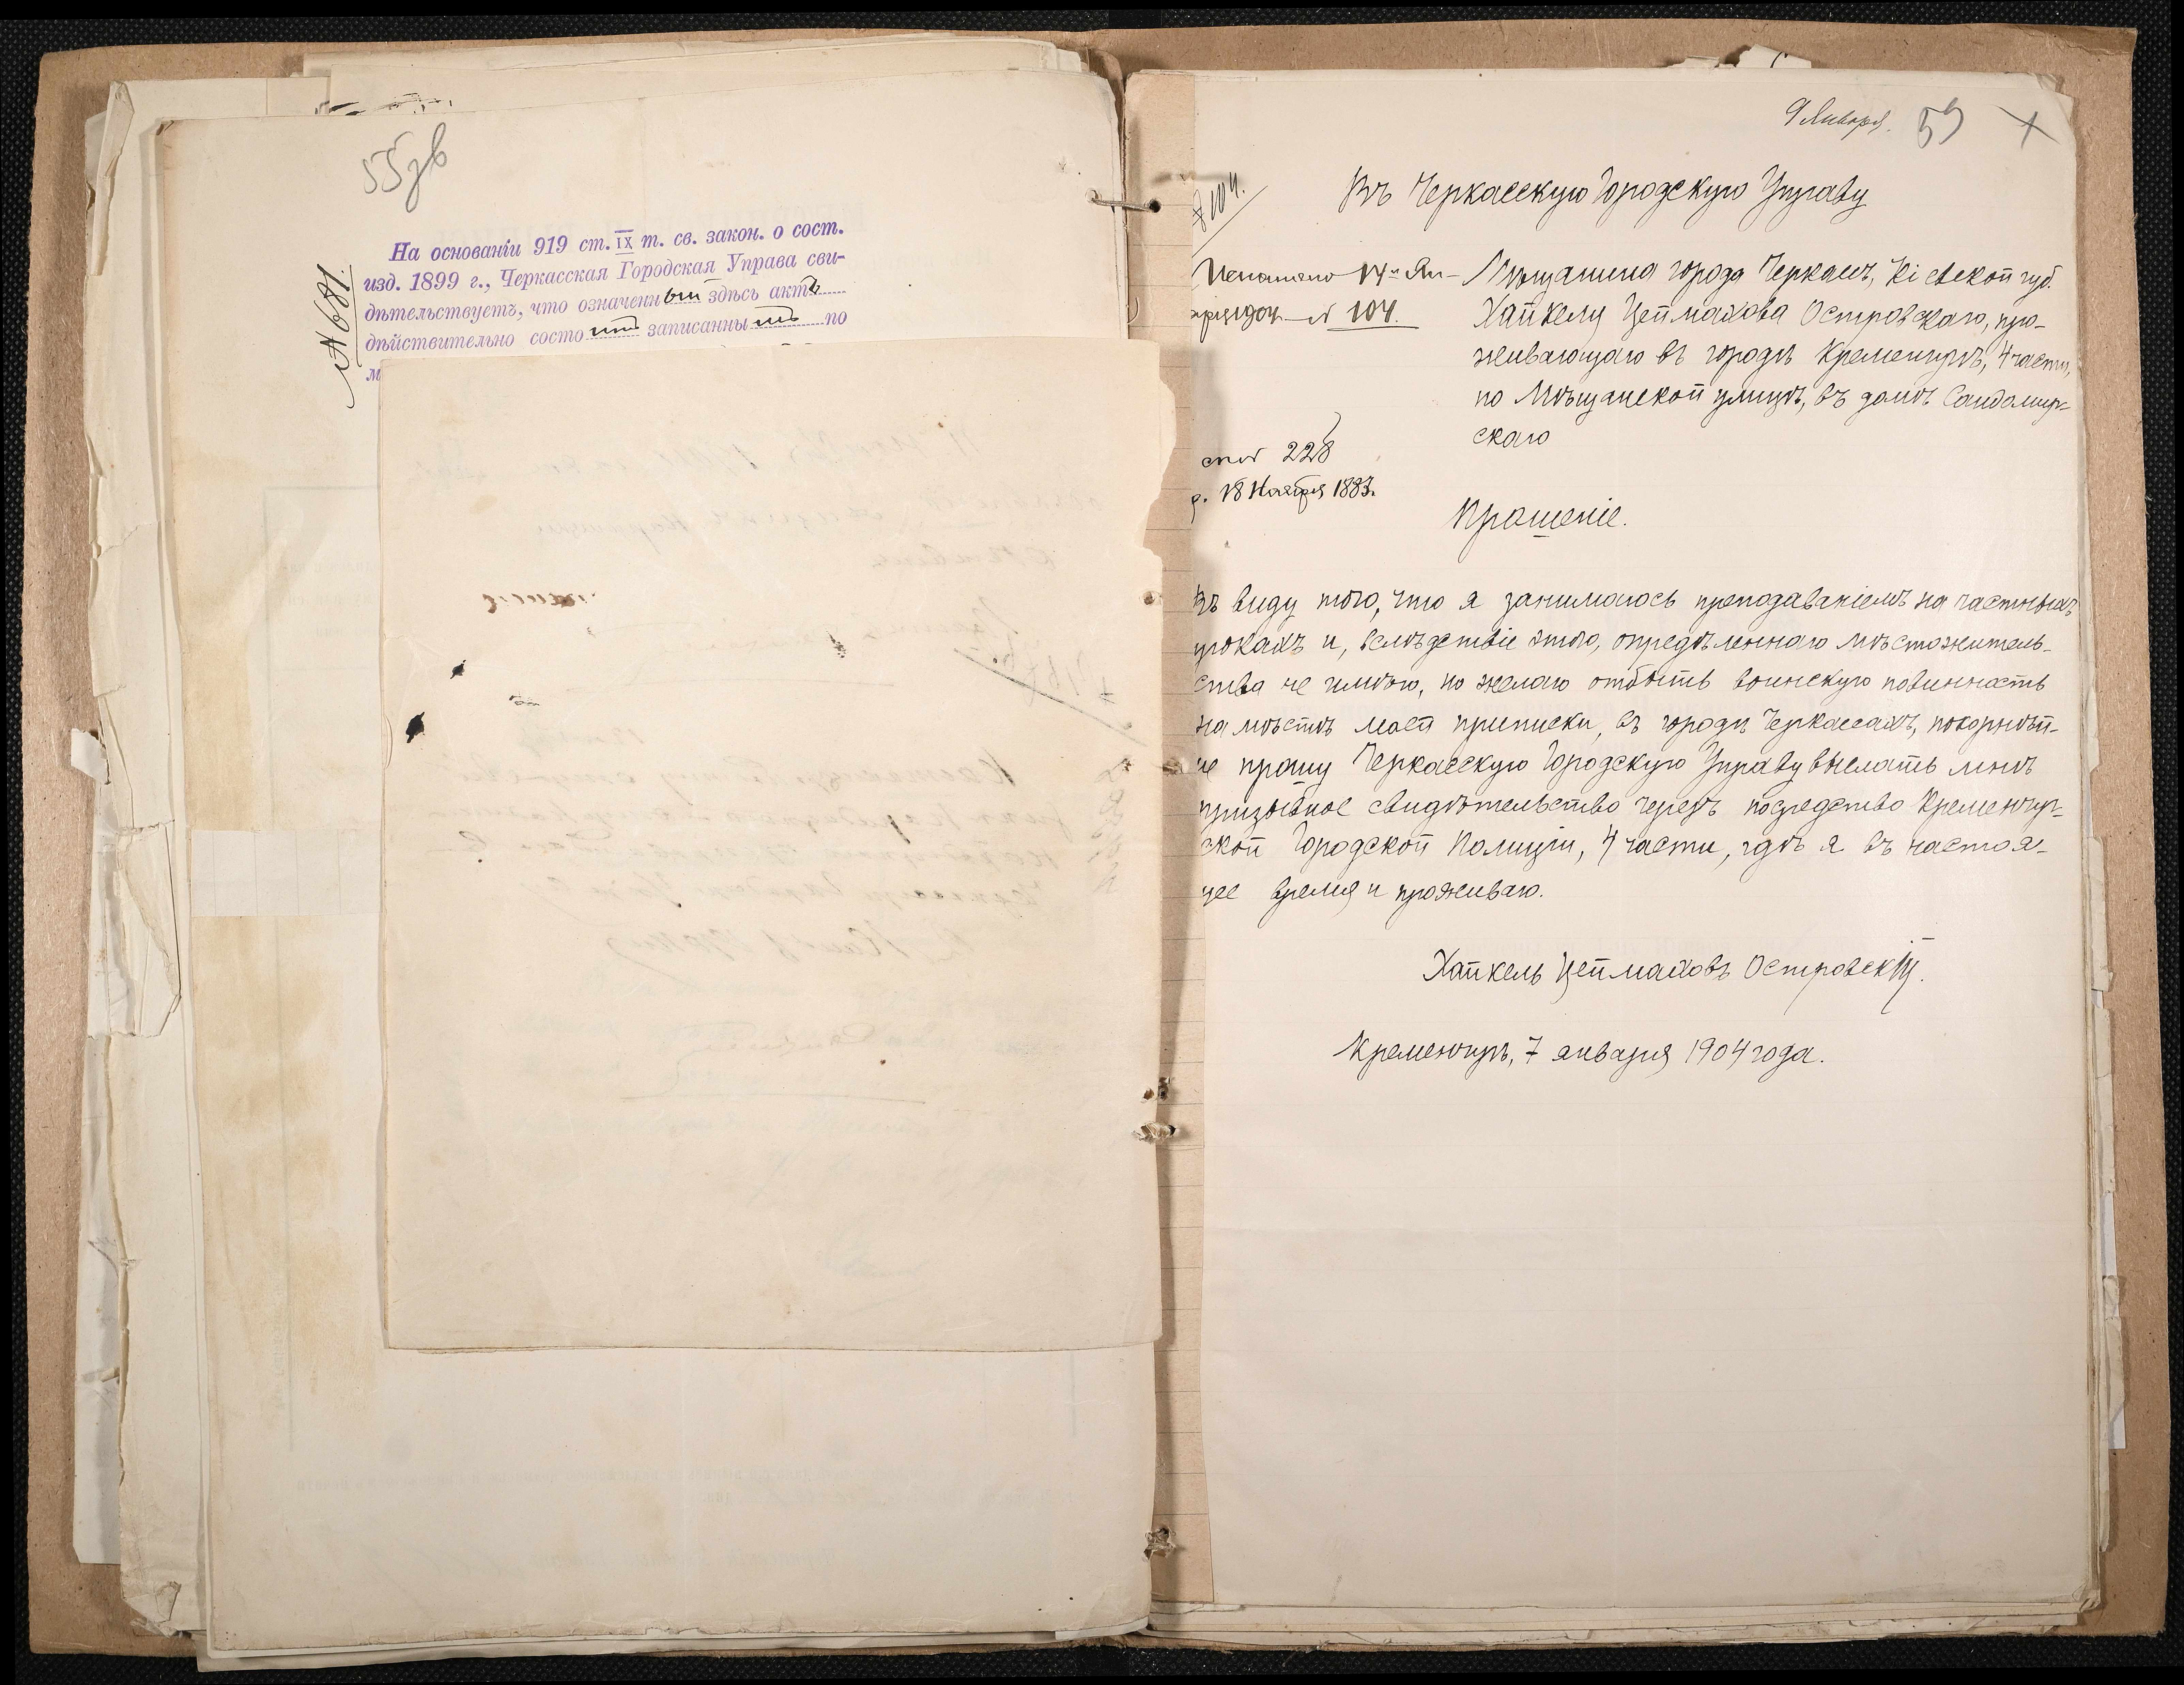 55зв
№ 681.
На основаніи 919 ст. IX т. св. закон. о сост.
изд. 1899 г., Черкасская Городская Управа сви-
дѣтельствуетъ, что означенный здѣсь актъ
дѣйствительно состоитъ записаннымъ по
м
9 Января. 59
№ 104.
Въ Черкасскую Городскую Управу
Исполнено 14го Ян-
варя 1904 № 104.
Мѣщанина города Черкасъ, Кіевской губ.
Хайкеля Цеймахова Островскаго, про-
живающаго въ городѣ Кременчугѣ, 4 части,
по Мѣщанской улицѣ, въ домѣ Сандомир-
скаго
228
р. 18 Ноября 1883.
Прошеніе.
Въ виду того, что я занимаюсь преподаваніемъ на частныхъ
урокахъ и, вслѣдствіе этого, опредѣленнаго мѣстожитель-
ства не имѣю, но желаю отбыть воинскую повинность
на мѣстѣ моей приписки, въ городѣ Черкассахъ, покорнѣй-
ше прошу Черкасскую Городскую Управу выслать мнѣ
призывное свидѣтельство черезъ посредство Кременчуг-
ской Городской Полиціи, 4 части, гдѣ я въ настоя-
щее время и проживаю.
Хайкель Цеймаховъ Островскій.
Кременчугъ, 7 января 1904 года.